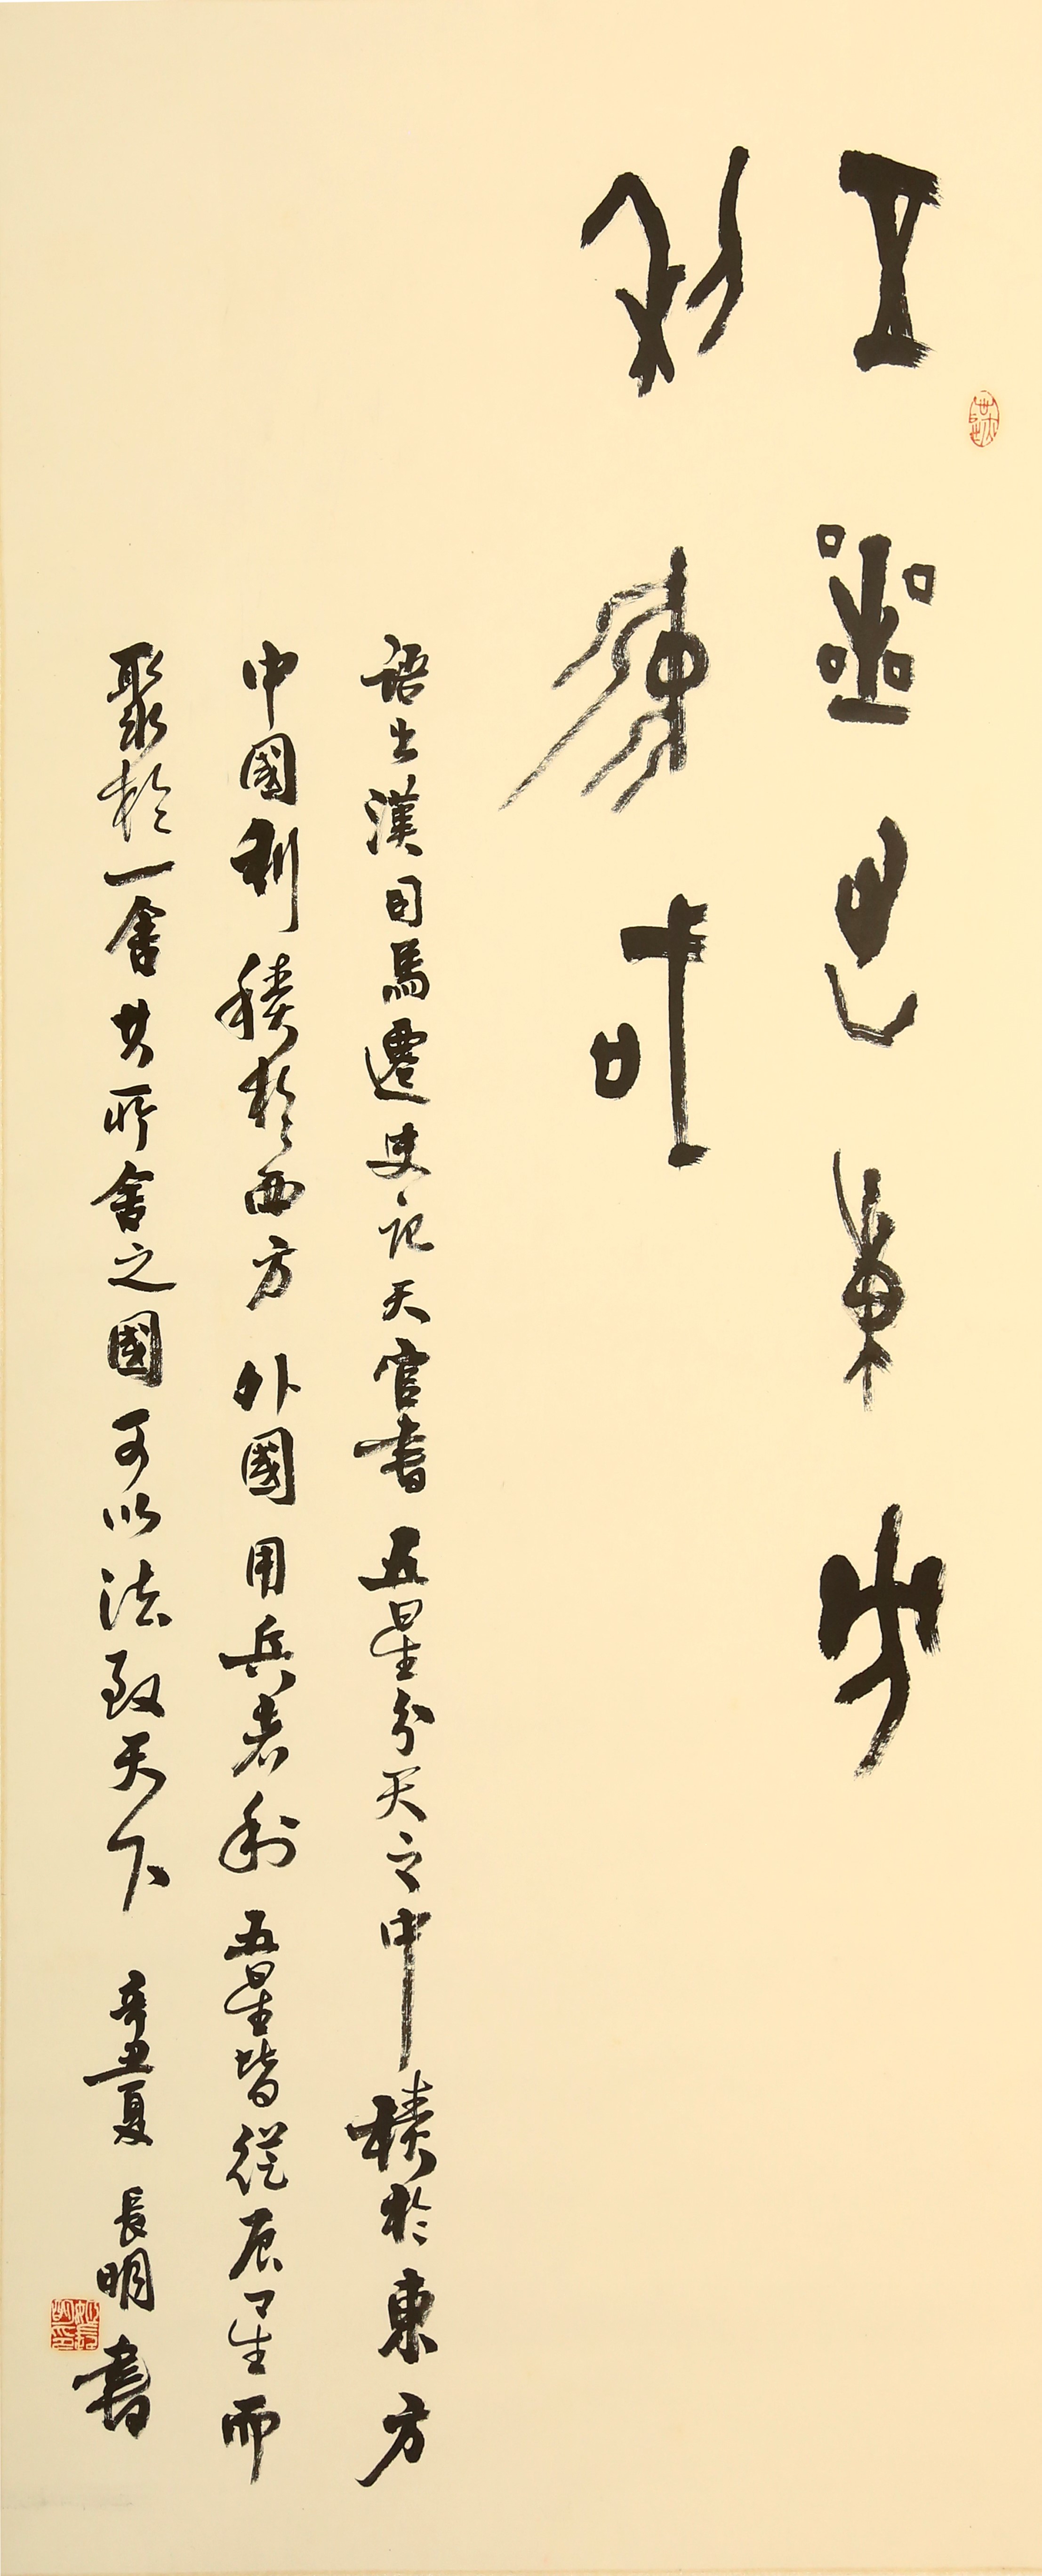 五星
利
語出漢司馬遷史記天官書 五星分天之中積於東方
中國利 積於西方 外國用兵者利 五星皆從辰星而
聚於一舍其所舍之國可以法致天下 辛丑夏 長明書